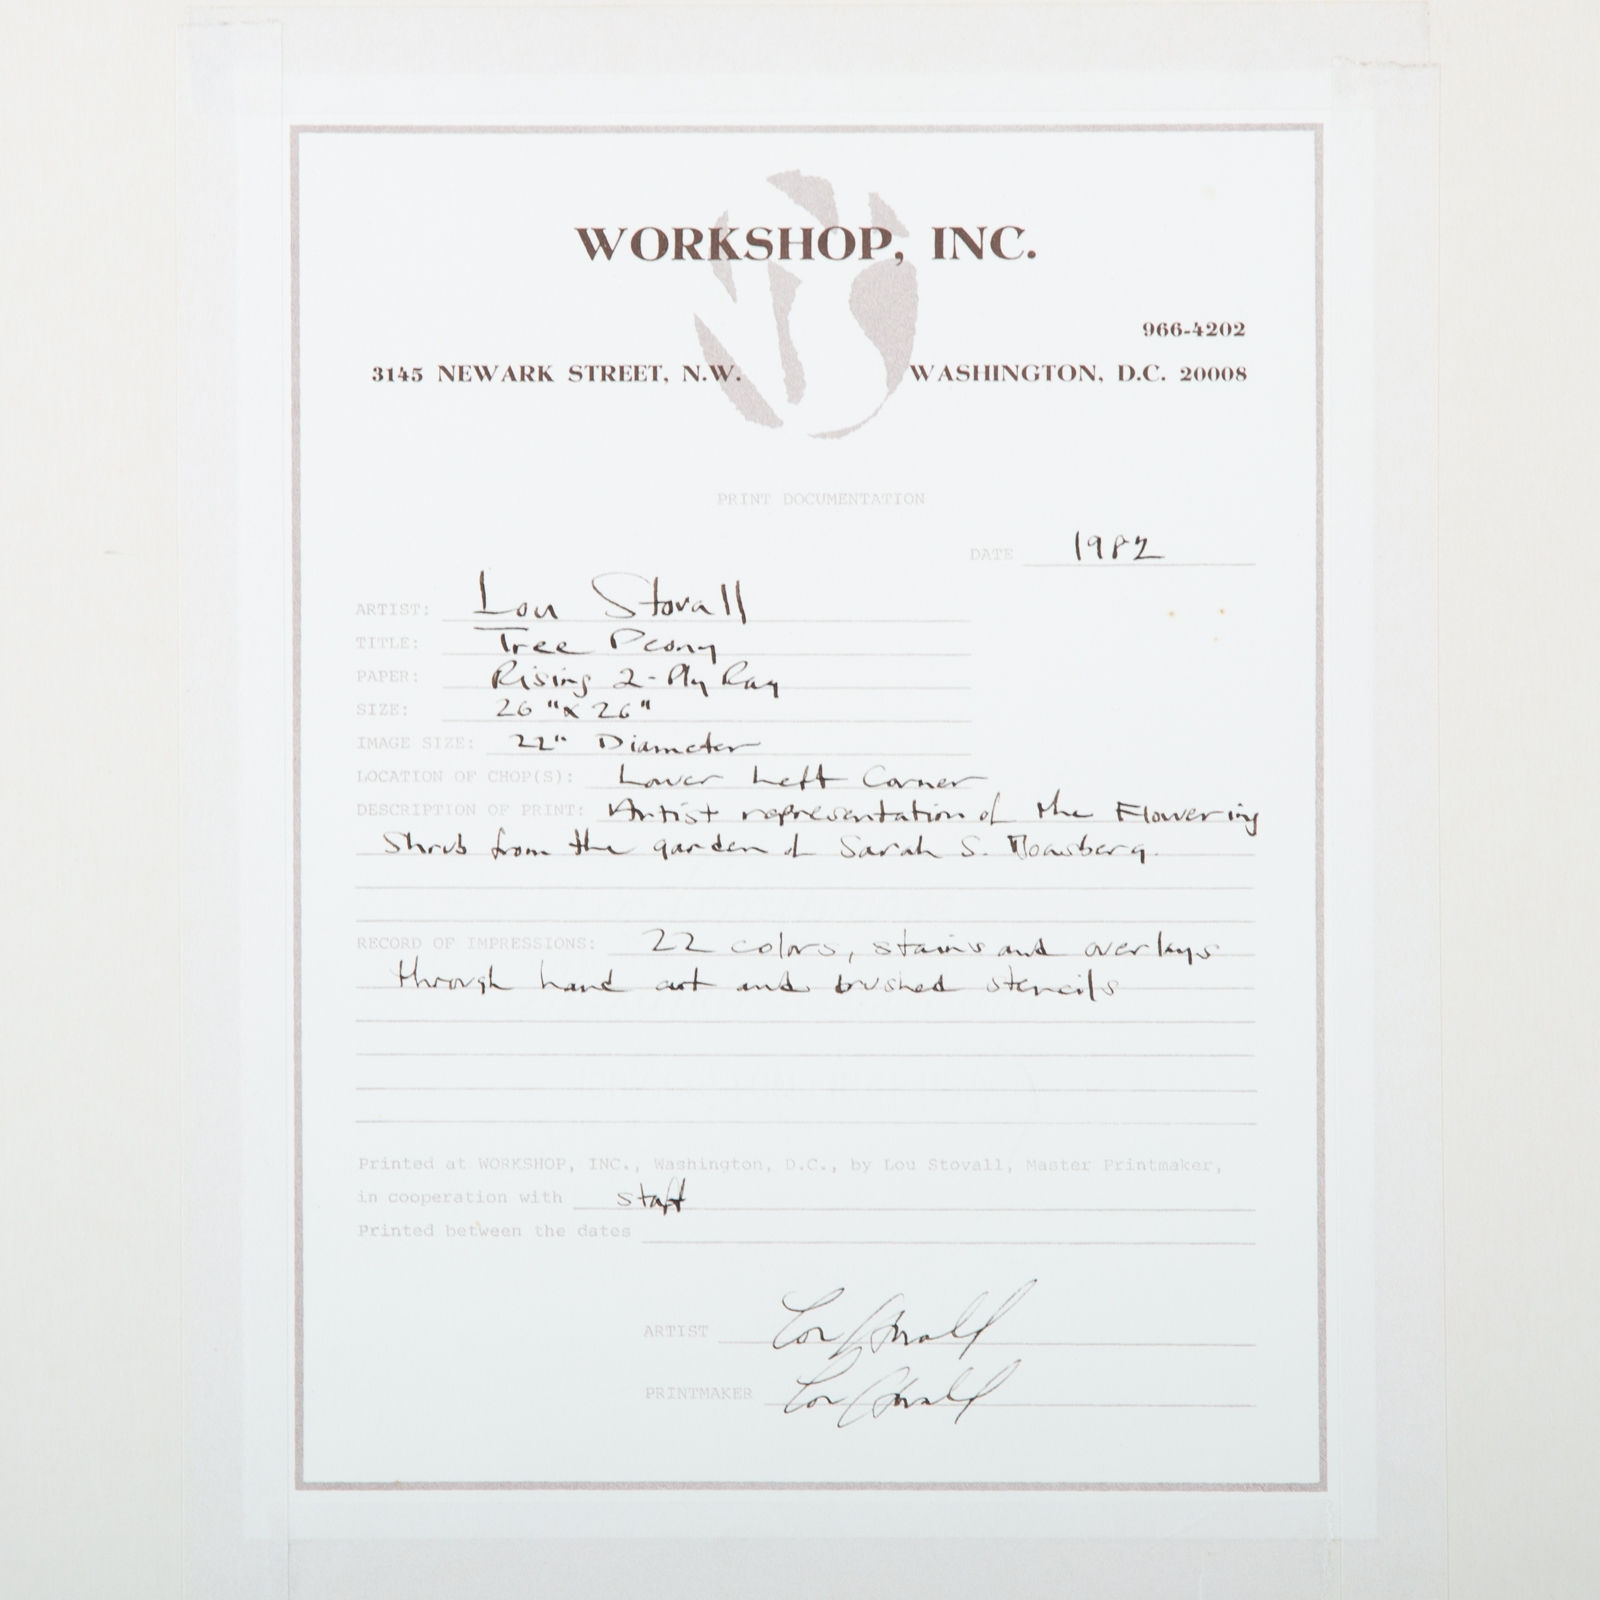 WORKSHOP, INC.
966-4202
3145 NEWARK STREET, N.W. WASHINGTON, D.C. 20008
PRINT DOCUMENTATION
DATE 1982
ARTIST: Lou Stovall
TITLE: Tree Peony
PAPER: Rising 2-Ply Rag
SIZE: 26" x 26"
IMAGE SIZE: 22" Diameter
LOCATION OF CHOP(S): Lower Left Corner
DESCRIPTION OF PRINT: Artist representation of the Flowering
Shrub from the garden of Sarah S.
RECORD OF IMPRESSIONS: 22 colors, stains and overlays
through hand cut and brushed stencils
Printed at WORKSHOP, INC., Washington, D.C., by Lou Stovall, Master Printmaker,
in cooperation with staff
Printed between the dates
ARTIST Lou Stovall
PRINTMAKER Lou Stovall